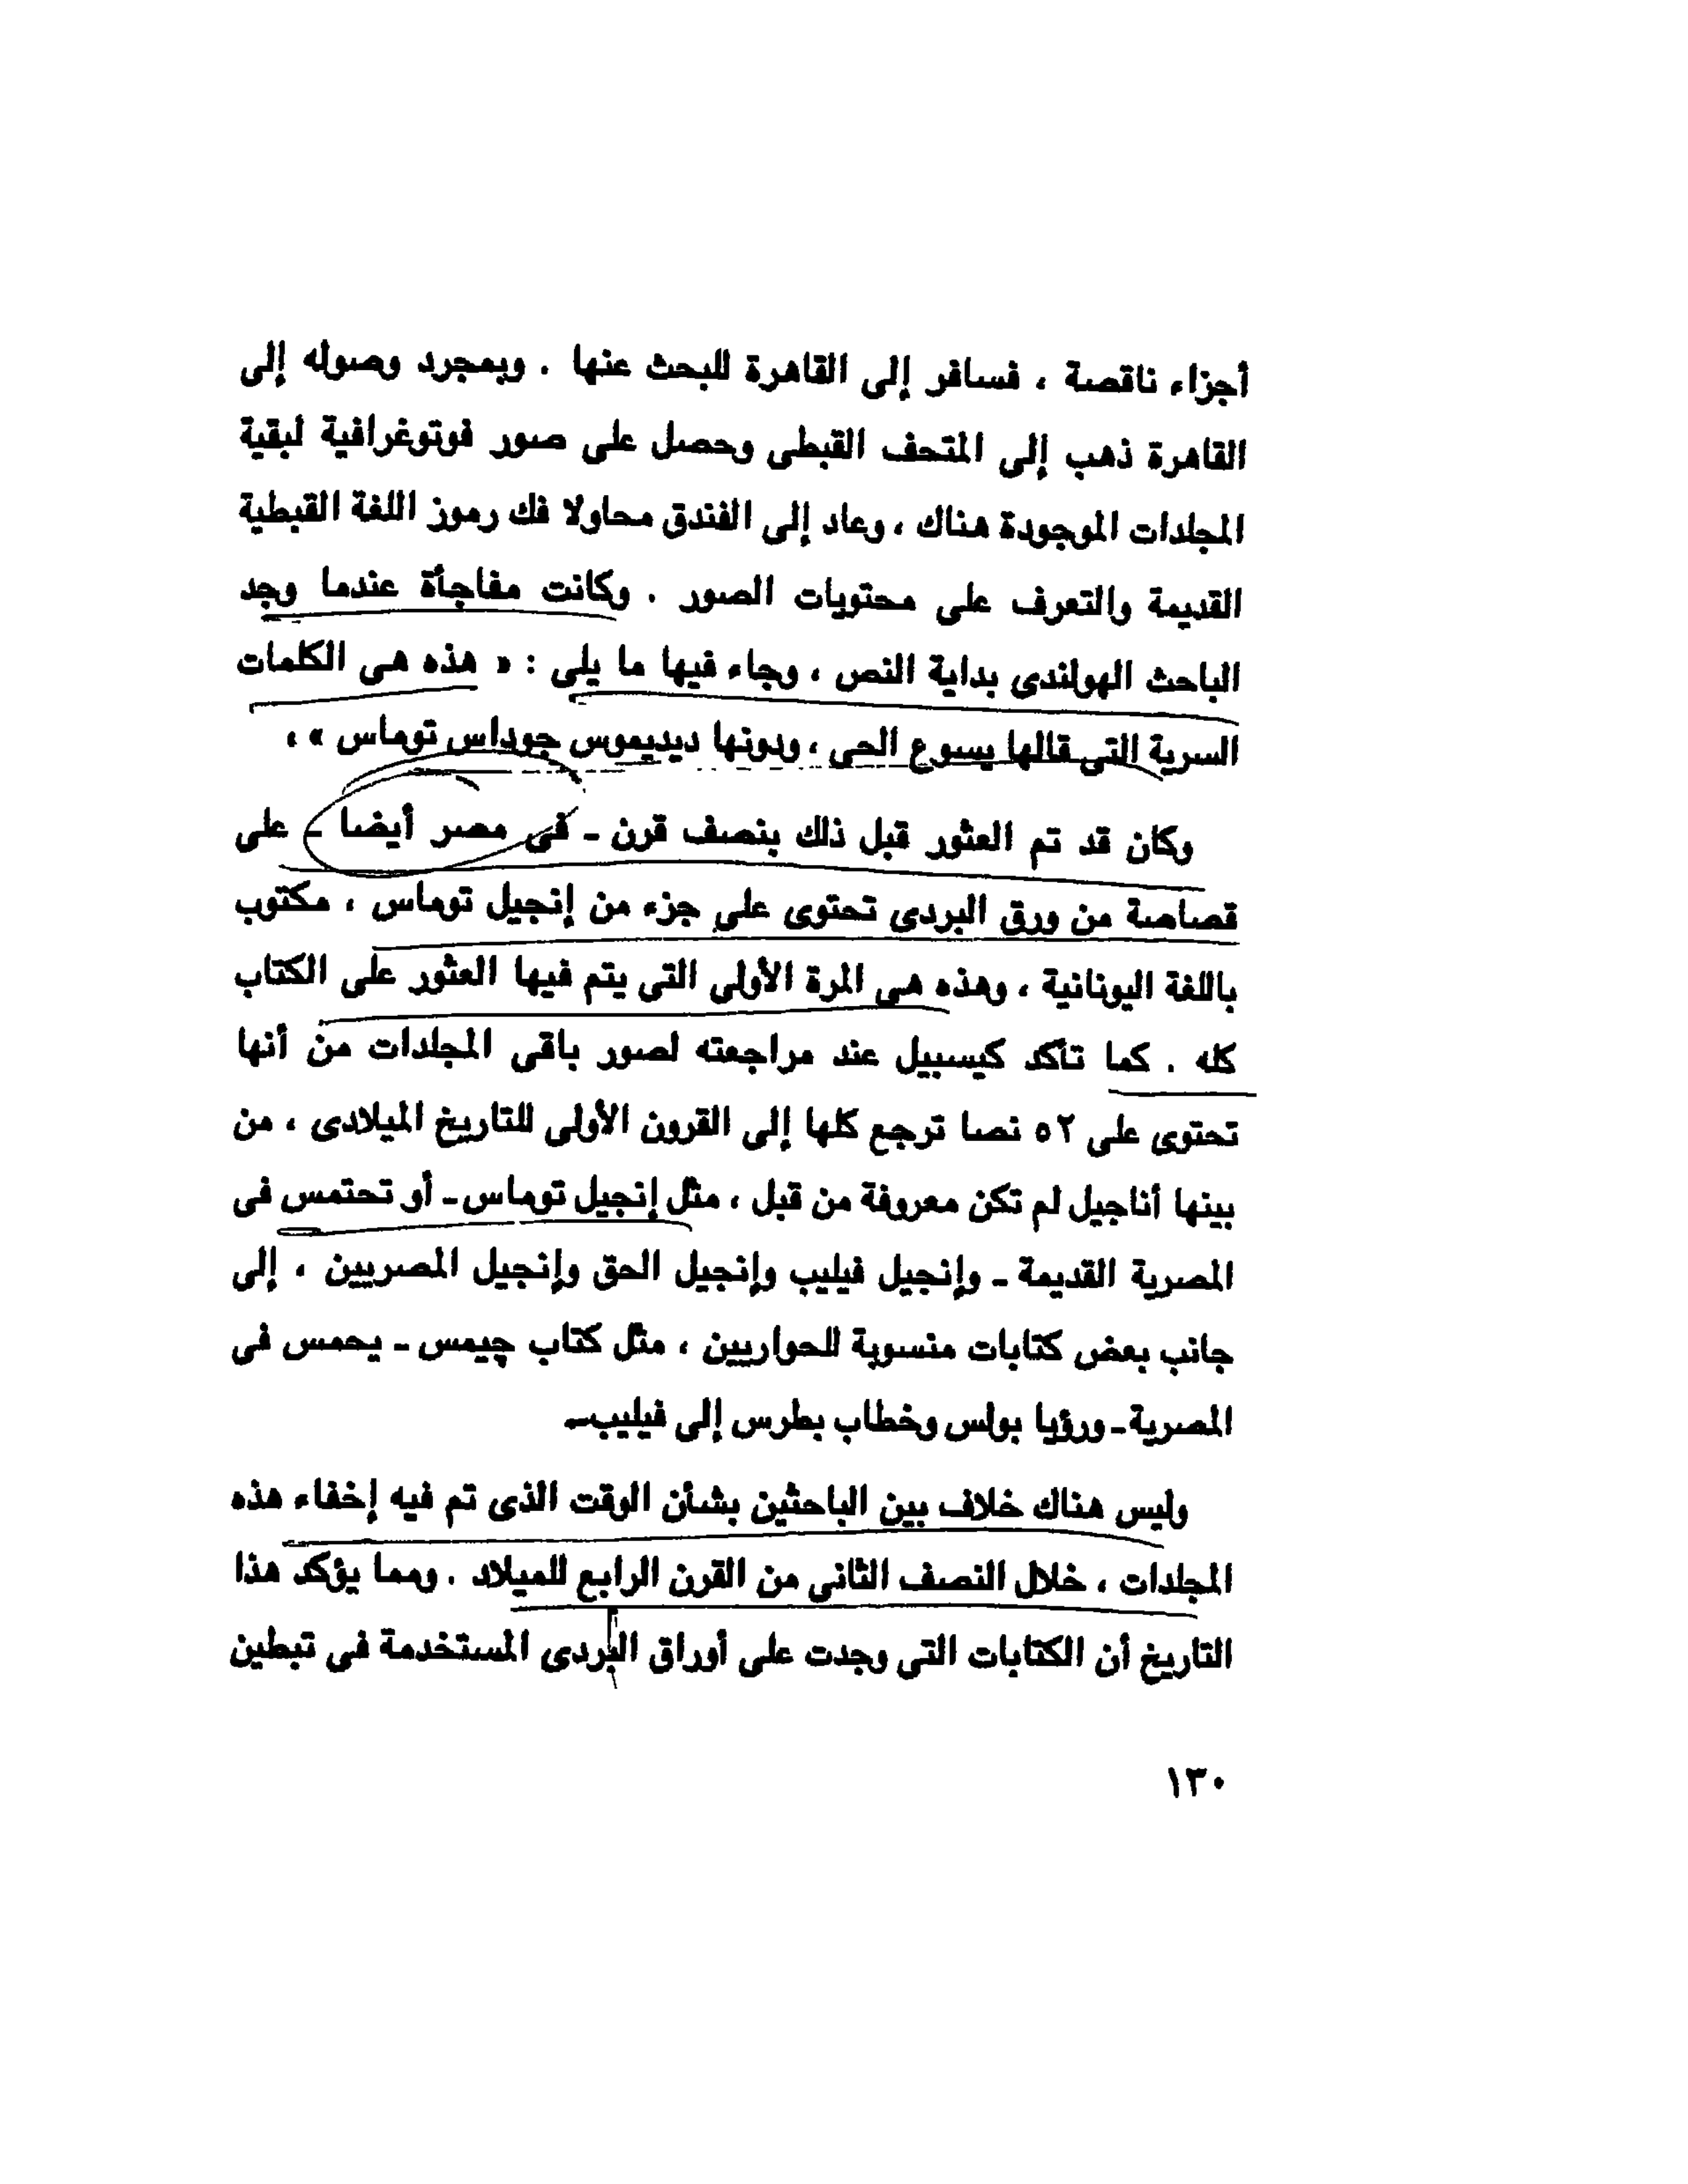 أجزاء ناقصة ، فسافر إلى القاهرة للبحث عنها . وبمجرد وصوله إلى
القاهرة ذهب إلى المتحف القبطى وحصل على صور فوتوغرافية لبقية
المجلدات الموجودة هناك ، وعاد إلى الفندق محاولا فك رموز اللغة القبطية
القديمة والتعرف على محتويات الصور . وكانت مفاجأة عندما وجد
الباحث الهولندى بداية النص ، وجاء فيها ما يلى : « هذه هى الكلمات
السرية التى قالها يسوع الحى ، ودونها ديديموس جوداس توماس » ،
وكان قد تم العثور قبل ذلك بنصف قرن ـ فى مصر أيضا ـ على
قصاصة من ورق البردى تحتوى على جزء من إنجيل توماس ، مكتوب
باللغة اليونانية ، وهذه هى المرة الأولى التى يتم فيها العثور على الكتاب
كله . كما تأكد كيسبيل عند مراجعته لصور باقى المجلدات من أنها
تحتوى على ٥٢ نصا ترجع كلها إلى القرون الأولى للتاريخ الميلادى ، من
بينها أناجيل لم تكن معروفة من قبل ، مثل إنجيل توماس ـ أو تحتمس فى
المصرية القديمة ـ وإنجيل فيليب وإنجيل الحق وإنجيل المصريين ، إلى
جانب بعض كتابات منسوبة للحواريين ، مثل كتاب چيمس ـ يحمس فى
المصرية ـ ورؤيا بولس وخطاب بطرس إلى فيليب ـ
وليس هناك خلاف بين الباحثين بشأن الوقت الذى تم فيه إخفاء هذه
المجلدات ، خلال النصف الثانى من القرن الرابع للميلاد . ومما يؤكد هذا
التاريخ أن الكتابات التى وجدت على أوراق البردى المستخدمة فى تبطين
١٣٠